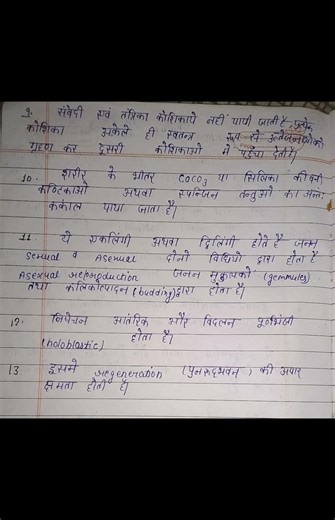 9. संवेदी एवं तंत्रिका कोशिकाये नहीं पायी जाती है, प्रत्येक
कोशिका अकेले ही स्वतन्त्र रूप से उत्तेजनाओं को
ग्रहण कर दूसरी कोशिकाओं में पहुँचा देती है।
10. शरीर के भीतर CaCO3 या सिलिका की बनी
कण्टिकाओ अथवा स्पन्जिन तन्तुओ का अन्तः
कंकाल पाया जाता है।
11. ये एकलिंगी अथवा द्विलिंगी होते है जनन
sexual व Asexual दोनो विधियो द्वारा होता है
Asexual reproduction जनन मुकुलको (gemmules)
तथा कलिकोत्पादन (budding) द्वारा होता है।
12. निषेचन आंतरिक और विदलन पूर्णभंजी
(holoblastic) होता है।
13 इसमे regeneration (पुनरुदभवन) की अपार
क्षमता होती है।